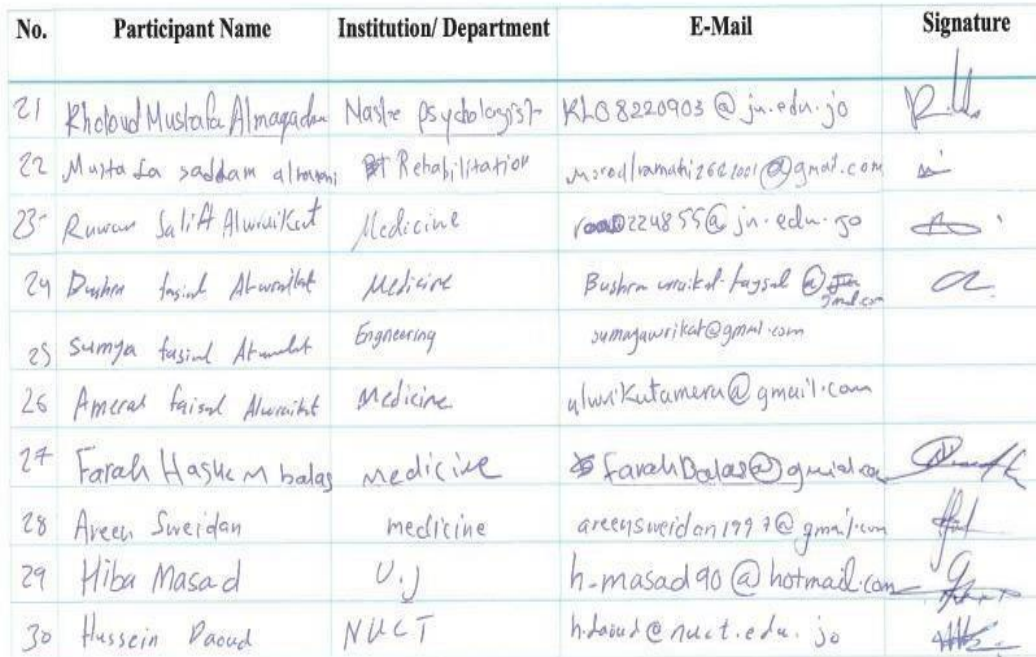 No. Participant Name Institution/ Department E-Mail Signature
21 Kholoud Mustafa Almagadan Nastre psychologist KLO8220903@ju.edu.jo
22 Mustafa saddam Rehabilitation @gmail.com
23 Rawan Medicine 224855@ju.edu.jo
24 Bushra Medicine Bushra @gmail.com
25 Sumya Engneering sumayawrikat@gmail.com
26 Ameera faisal Alwraikat Medicine alwrikutamera@gmail.com
27 Farah Hashem balas medicine farahBalas@gmial.com
28 Areen Sweidan medicine areensweidan1997@gmail.com
29 Hiba Masad U.J h-masad90@hotmail.com
30 Hussein Daoud NUCT h.daoud@nuct.edu.jo